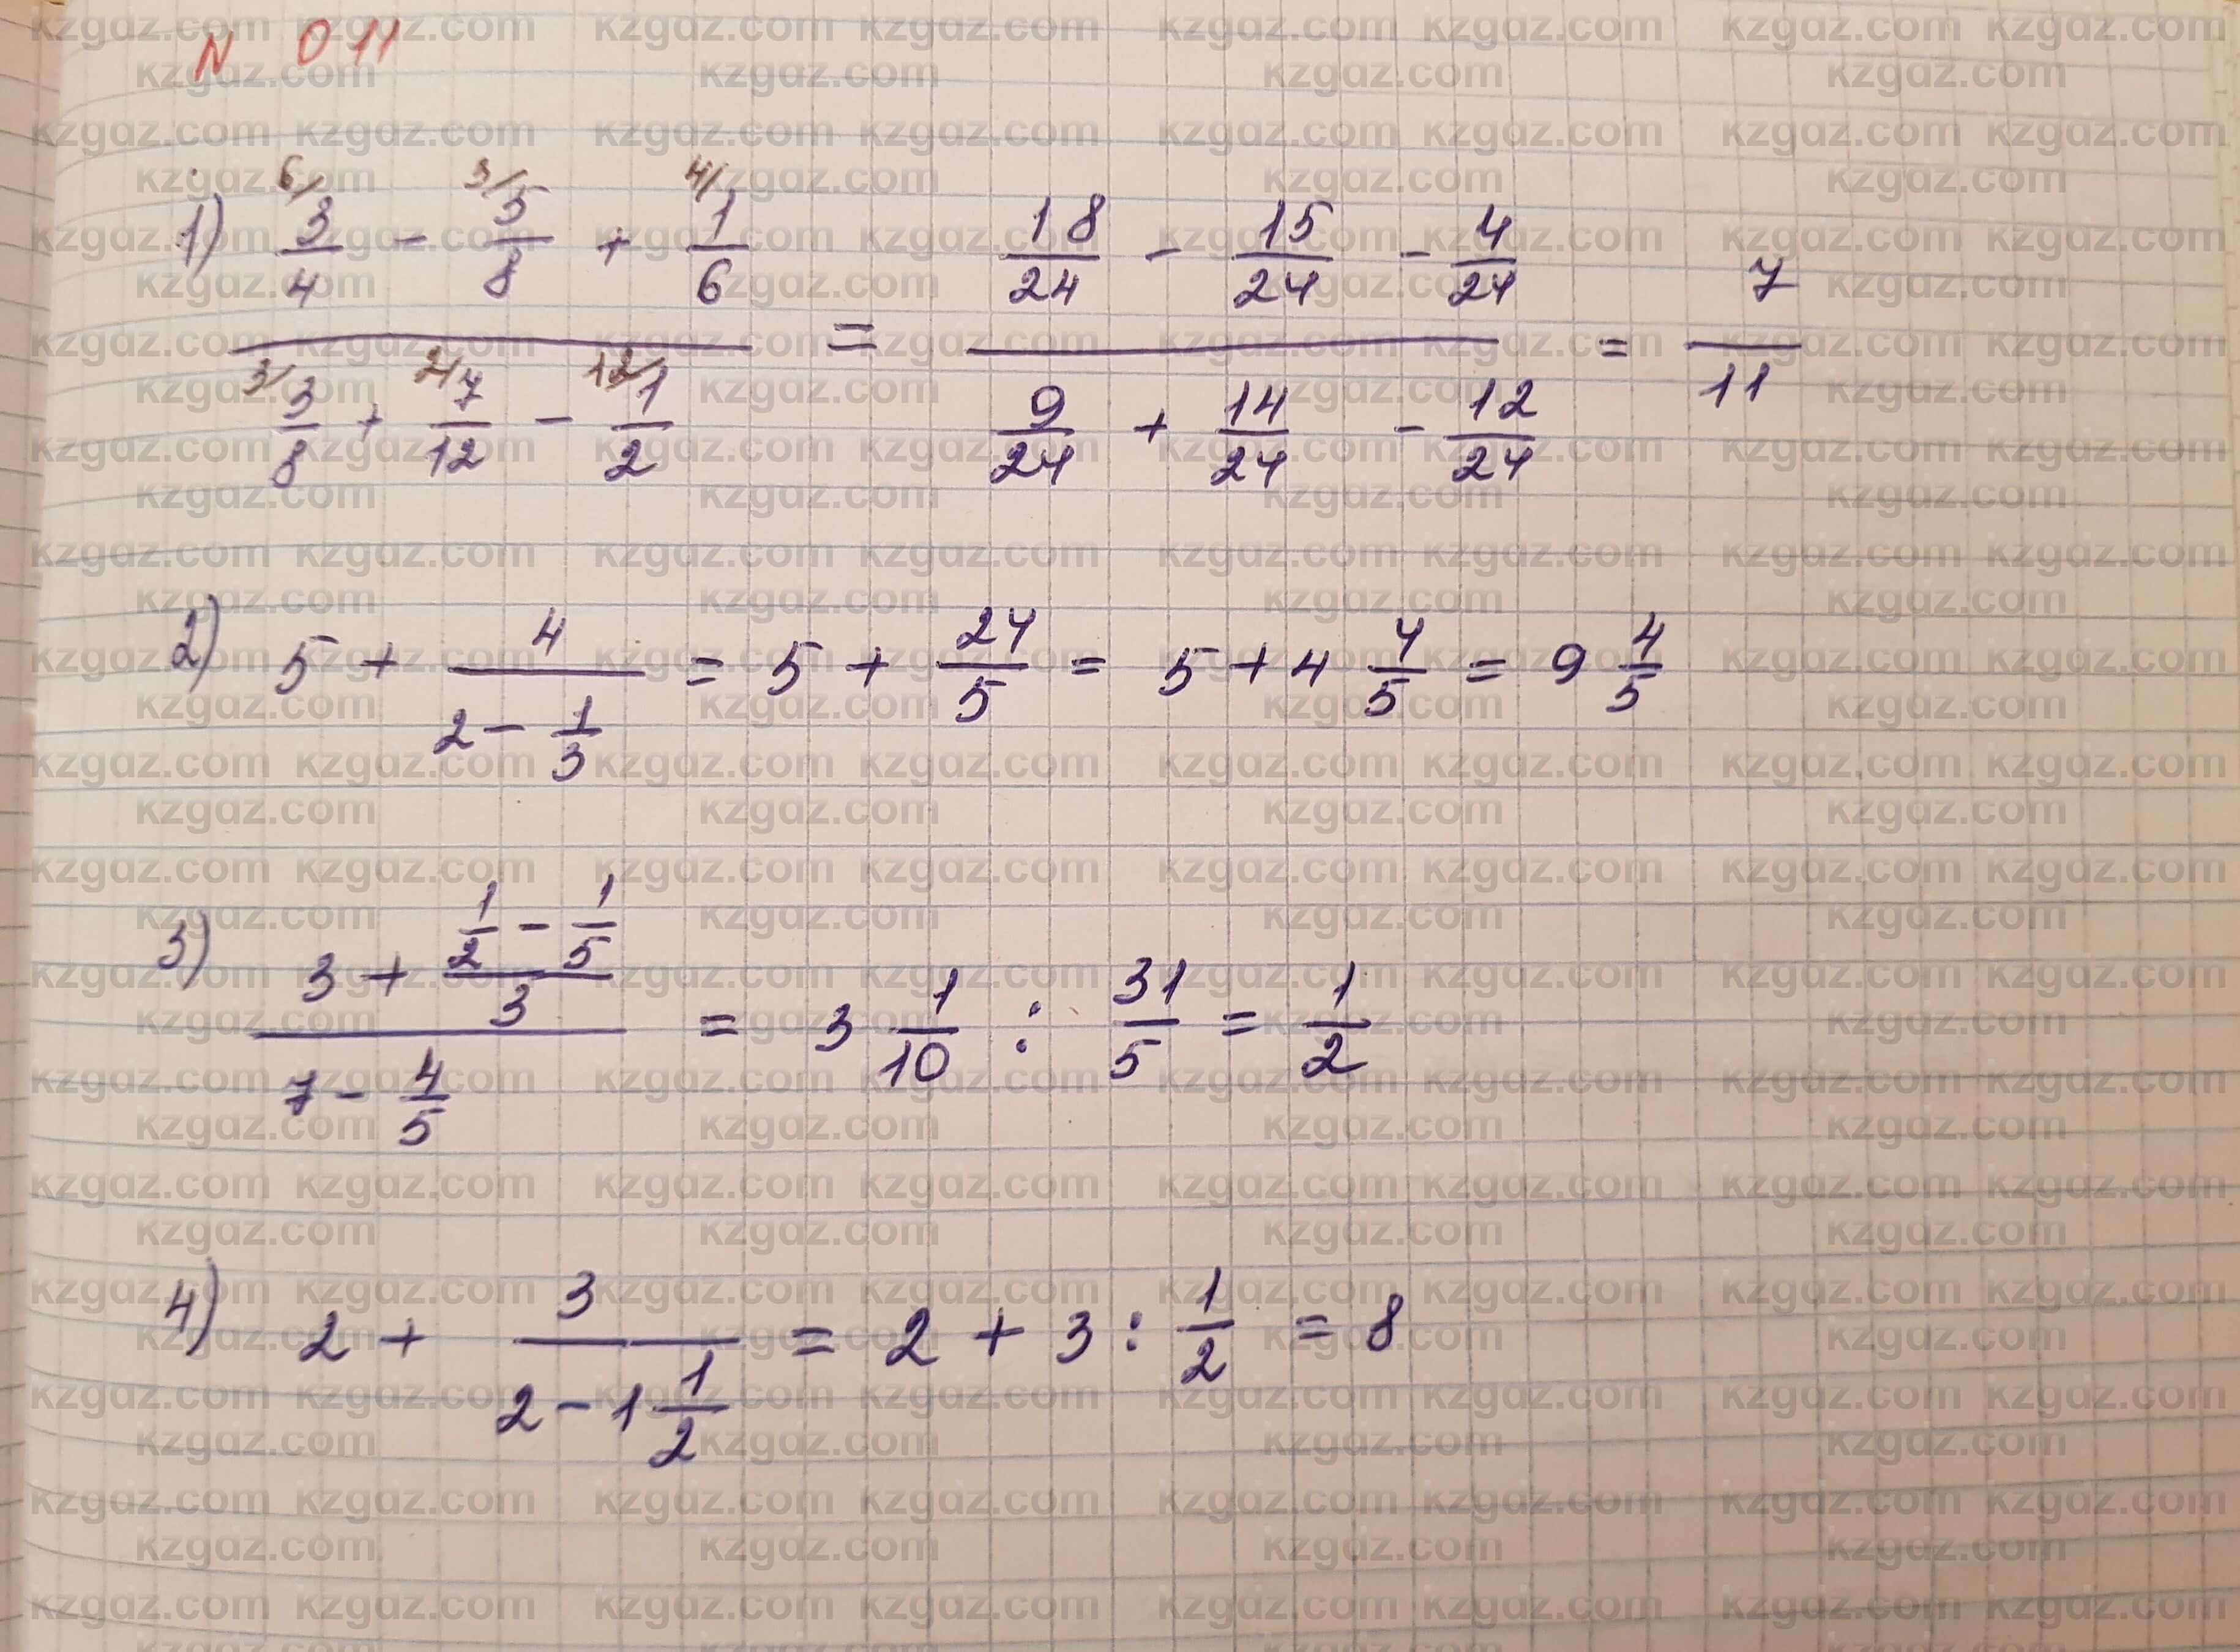 N 011
1) (6/ 3/4 - 3/ 5/8 + 4/ 1/6) / (3/ 3/8 + 2/ 7/12 - 12/ 1/2) = (18/24 - 15/24 - 4/24) / (9/24 + 14/24 - 12/24) = 7/11
2) 5 + 4/(2 - 1/3) = 5 + 24/5 = 5 + 4 4/5 = 9 4/5
3) (3 + (1/2 - 1/5)/3) / (7 - 4/5) = 3 1/10 : 31/5 = 1/2
4) 2 + 3/(2 - 1 1/2) = 2 + 3 : 1/2 = 8
kzgaz.com